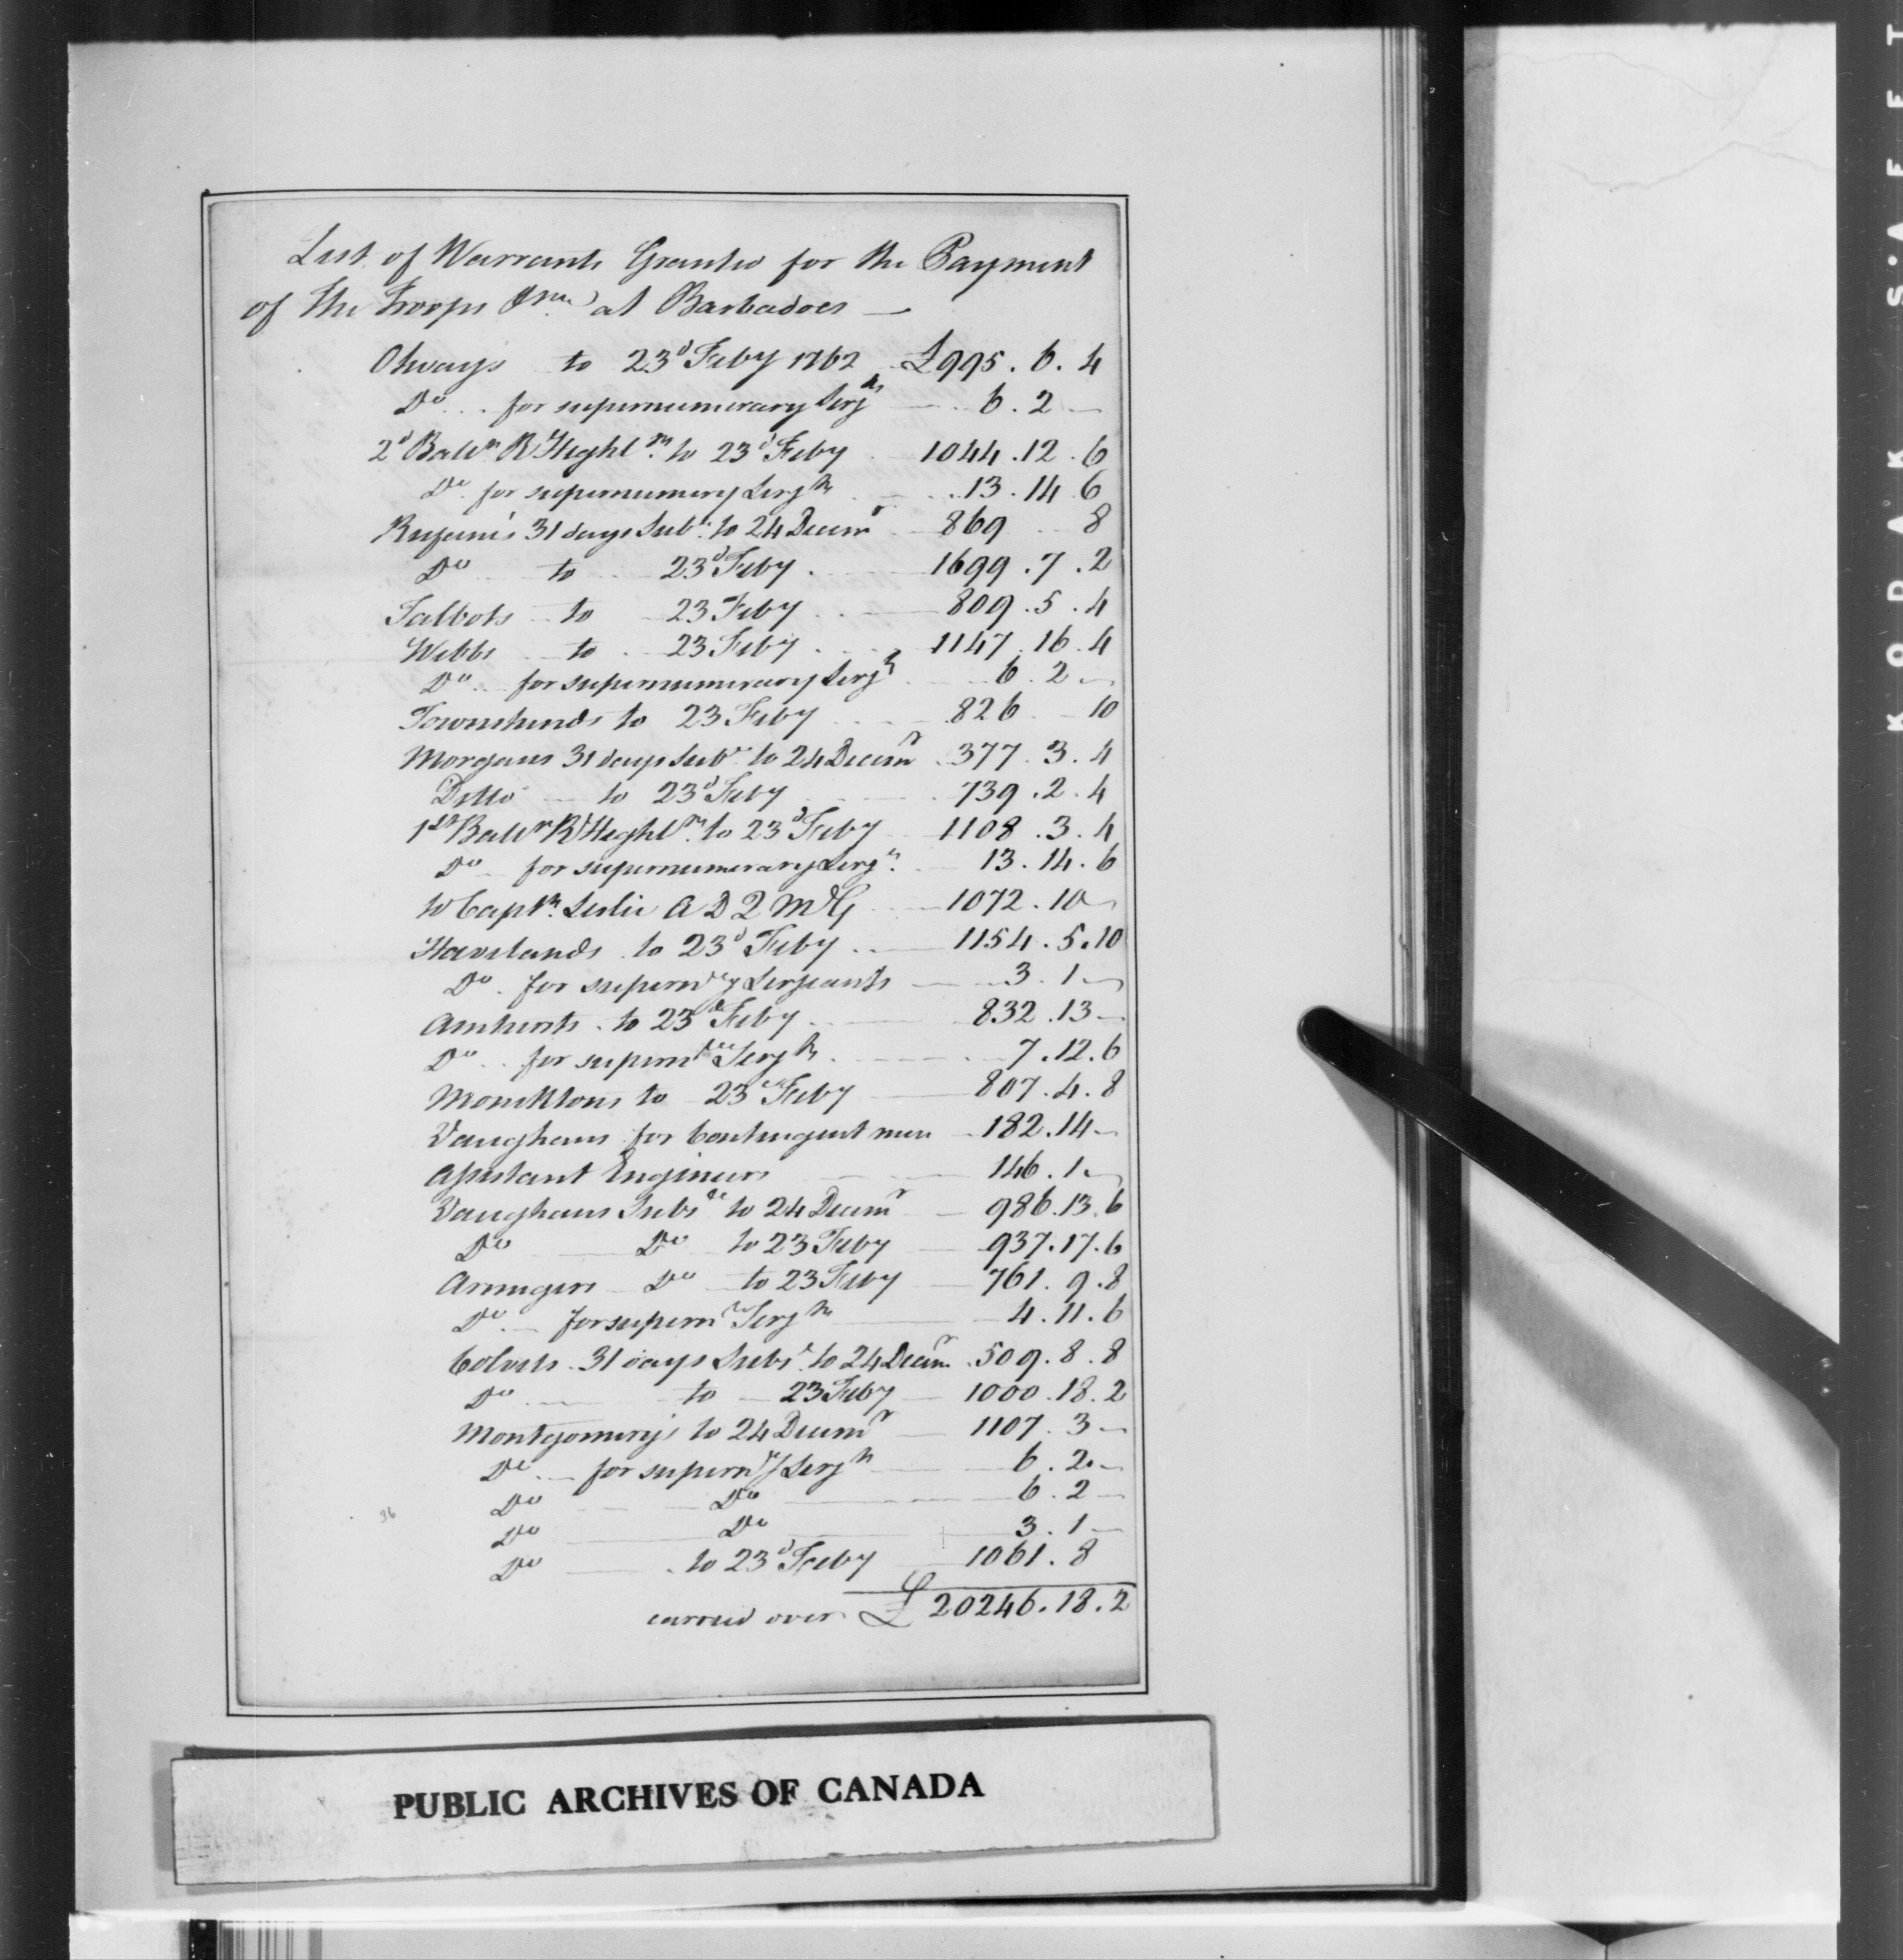 List of Warrants Granted for the Payment
of the Troops &ca at Barbadoes —
Otways to 23d Feby 1762 £995.6.4
Do for supernumerary Serjts 6.2—
2d Batln R Highlrs to 23d Feby 1044.12.6
Do for supernumery Serjts 13.14.6
Rufanes 31 days Subs. to 24 Decemr 869 8
Do to 23d Feby 1699.7.2
Talbots to 23 Feby 809.5.4
Webbs to 23 Feby 1147.16.4
Do for supernumerary Serjts 6.2—
Townshends to 23 Feby 826 — 10
Morgans 31 days Subs. to 24 Decemr 377.3.4
Ditto to 23d Feby 739.2.4
1st Batln R Highlrs to 23d Feby 1108.3.4
Do for supernumerary Serjts 13.14.6
to Captn Leslie A D Q M G 1072.10—
Havilands to 23d Feby 1154.5.10
Do for supernry Serjeants 3.1—
Amhersts to 23d Feby 832.13—
Do for supernry Serjts 7.12.6
Moncktons to 23d Feby 807.4.8
Vaughans for Contingent men 182.14—
Assistant Engineers 146.1—
Vaughans Subsce to 24 Decemr 986.13.6
Do Do to 23 Feby 937.17.6
Armigers Do to 23 Feby 761.9.8
Do for supernry Serjts 4.11.6
Colvils 31 days Subs. to 24 Decemr 509.8.8
Do to 23 Feby 1000.18.2
Montgomerys to 24 Decemr 1107.3—
Do for supernry Serjts 6.2—
Do Do 6.2—
Do Do 3.1—
Do to 23d Feby 1061.8
carried over £20246.18.2
36
PUBLIC ARCHIVES OF CANADA